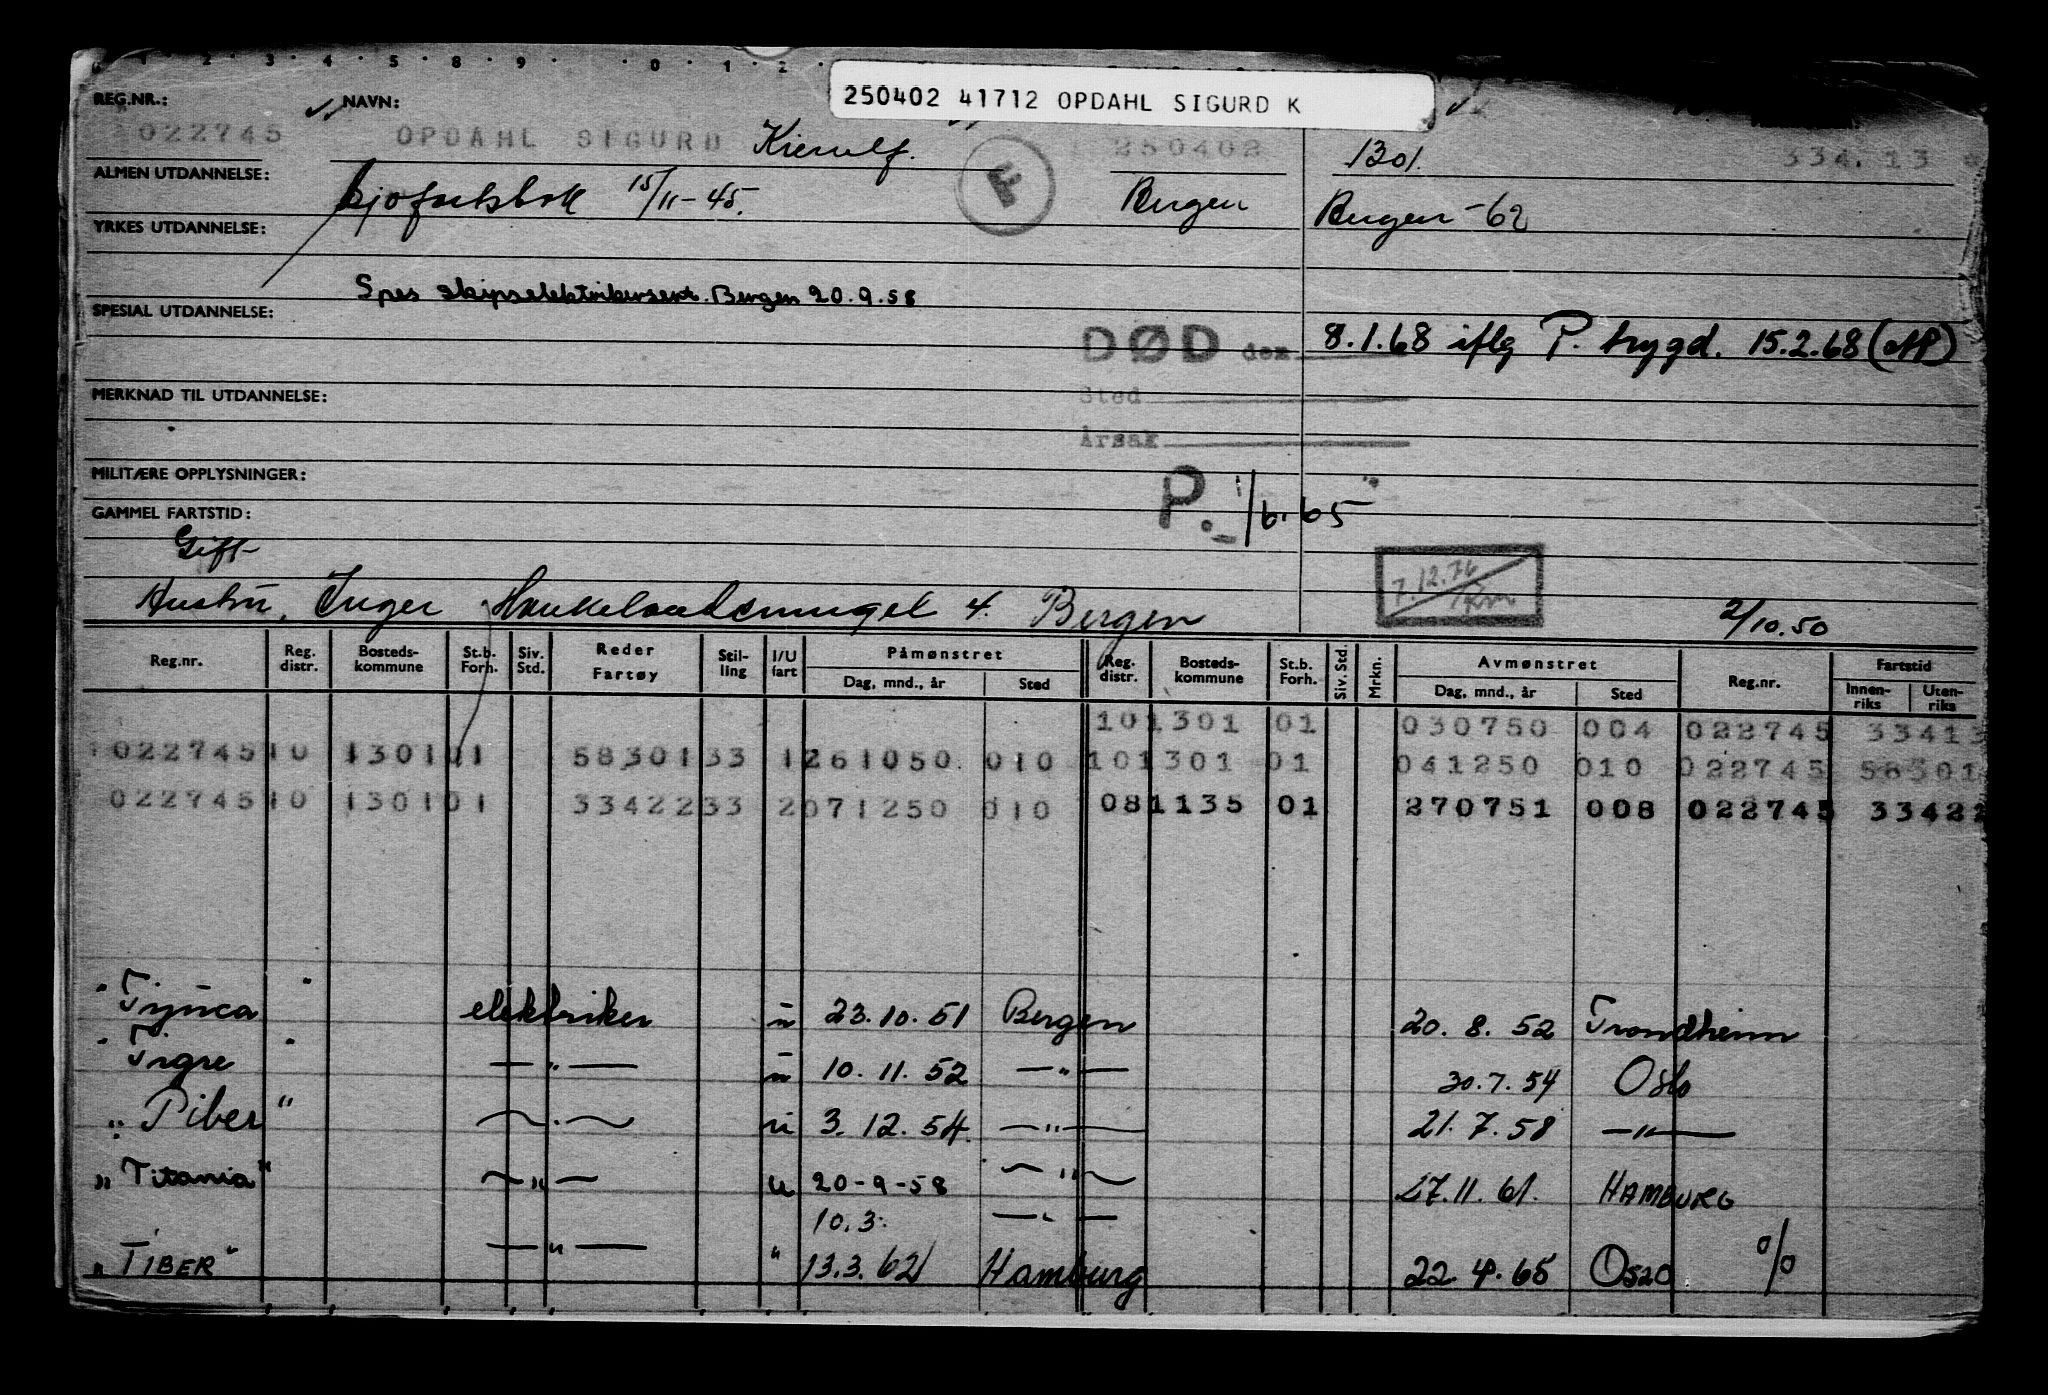 250402 41712 OPDAHL SIGURD K
REG.NR.: NAVN:
022745 OPDAHL SIGURD Kierulf. 250402 1301. 334.13
ALMEN UTDANNELSE: Sjøfartsbok 15/11-45. F Bergen Bergen -62
YRKES UTDANNELSE:
Spes skipselektrikersert. Bergen 20.9.58
SPESIAL UTDANNELSE:
DØD den 8.1.68 iflg P. trygd. 15.2.68
MERKNAD TIL UTDANNELSE: Sted
Årsak
MILITÆRE OPPLYSNINGER:
GAMMEL FARTSTID: P. 1/6.65
Gift
7.12.76
Hustru, Inger Haukelandsmuget 4. Bergen 2/10.50
Reg.nr. Reg. distr. Bosteds-kommune St.b. Forh. Siv. Std. Reder Fartøy Stil-ling I/U fart Påmønstret Dag, mnd., år Sted Reg. distr. Bosteds-kommune St.b. Forh. Siv. Std. Mrkn. Avmønstret Dag, mnd., år Sted Reg.nr. Fartstid Innen-riks Uten-riks
101301 01 030750 004 022745 33413
022745 10 1301 01 58301 33 1 261050 010 101301 01 041250 010 022745 58301
022745 10 1301 01 33422 33 2 071250 010 081135 01 270751 008 022745 33422
"Tijuca" elektriker u 23.10.51 Bergen 20.8.52 Trondheim
"Tigre" — " — u 10.11.52 — " — 30.7.54 Oslo
"Tiber" — " — u 3.12.54 — " — 21.7.58 — " —
"Titania" — " — u 20-9-58 — " — 27.11.61. HAMBURG
10.3. — " —
"TIBER" — " — " 13.3.62 Hamburg 22.4.65 OSLO %